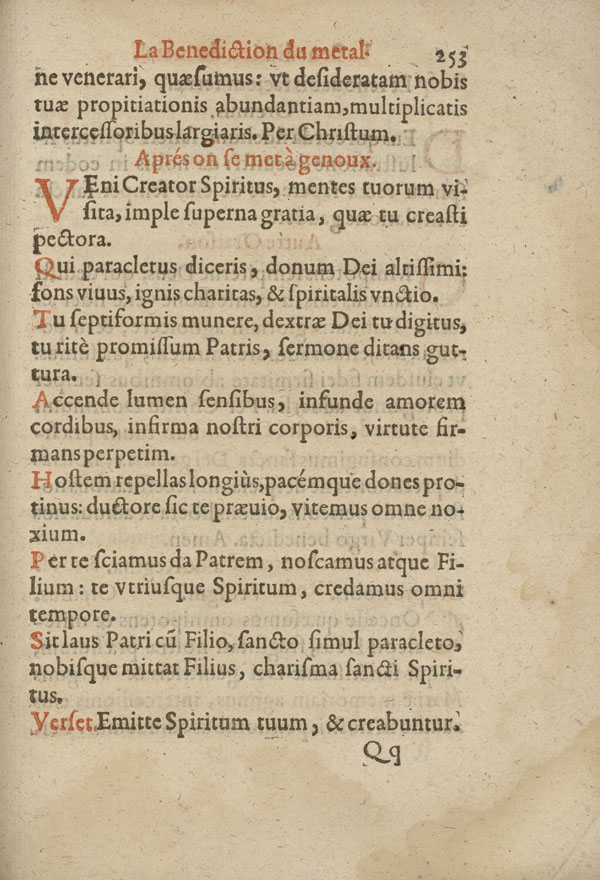 La Benediction du metal. 253
ne venerari, quæsumus: vt desideratam nobis
tuæ propitiationis abundantiam, multiplicatis
intercessoribus largiaris. Per Christum.
Aprés on se met à genoux.
VEni Creator Spiritus, mentes tuorum vi-
sita, imple superna gratia, quæ tu creasti
pectora.
Qui paracletus diceris, donum Dei altissimi:
fons viuus, ignis charitas, & spiritalis vnctio.
Tu septiformis munere, dextræ Dei tu digitus,
tu ritè promissum Patris, sermone ditans gut-
tura.
Accende lumen sensibus, infunde amorem
cordibus, infirma nostri corporis, virtute fir-
mans perpetim.
Hostem repellas longiùs, pacémque dones pro-
tinus: ductore sic te præuio, vitemus omne no-
xium.
Per te sciamus da Patrem, noscamus atque Fi-
lium: te vtriusque Spiritum, credamus omni
tempore.
Sit laus Patri cũ Filio, sancto simul paracleto,
nobisque mittat Filius, charisma sancti Spiri-
tus.
Verset. Emitte Spiritum tuum, & creabuntur.
Qq